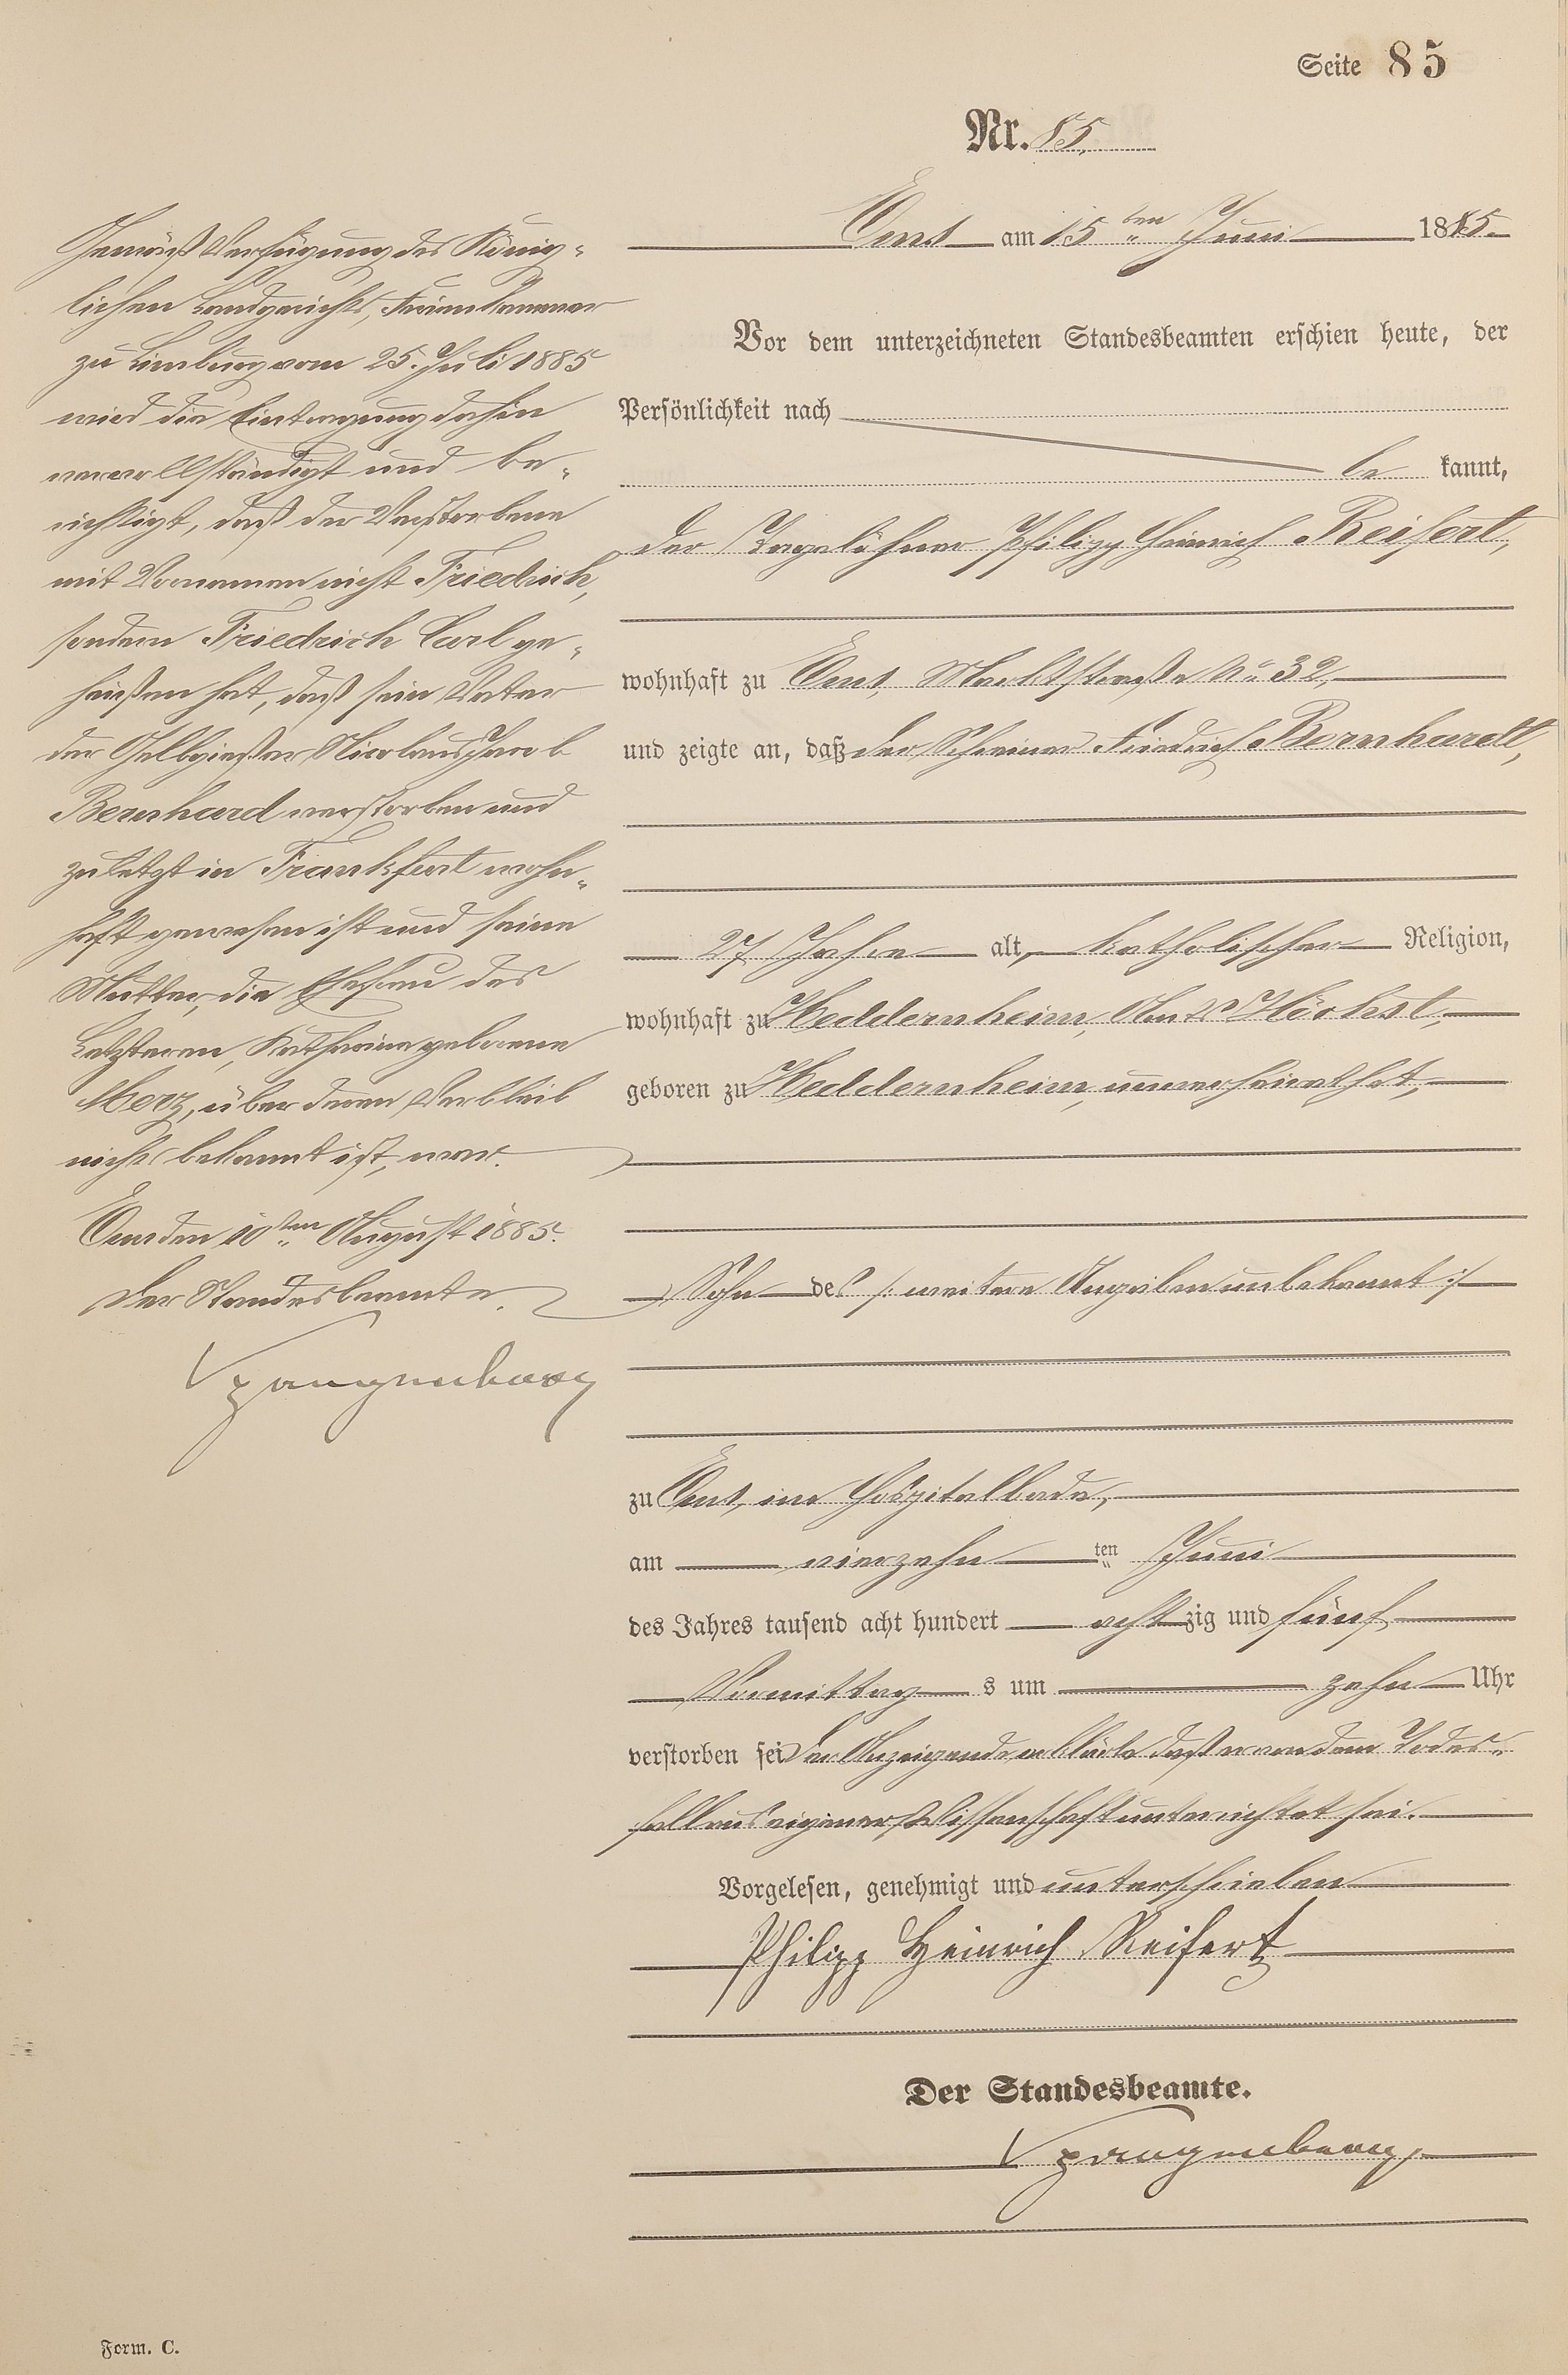 Seite 85
Nr. 85.
Ems am 15ten Juni 1885.
Vor dem unterzeichneten Standesbeamten erschien heute, der
Persönlichkeit nach
be kannt,
der Tagelöhner Philipp Heinrich Reifert,
wohnhaft zu Ems, Marktstraße No 32,
und zeigte an, daß der Schreiner Friedrich Bernhardt,
27 Jahre alt, katholischer Religion,
wohnhaft zu Heddernheim, Amts Höchst,
geboren zu Heddernheim, unverheirathet,
Sohn des /: weitere Angaben unbekannt :/
zu Ems, im Hospitalbade,
am vierzehn ten Juni
des Jahres tausend acht hundert acht zig und fünf
Vormittag s um zehn Uhr
verstorben sei. Der Anzeigende erklärte daß er von dem Todes-
fall aus eigener Wissenschaft unterrichtet sei.
Vorgelesen, genehmigt und unterschrieben
Philipp Heinrich Reifert
Der Standesbeamte.
Spangenberg.
Gemäß Verfügung des König-
lichen Landgerichts, Ferienkammer
zu Limburg vom 25. Juli 1885
wird die Eintragung dahin
vervollständigt und be-
richtigt, daß der Verstorbene
mit Vornamen nicht Friedrich,
sondern Friedrich Carl ge-
heißen hat, daß sein Vater
der Gelbgießer Nicolaus Jacob
Bernhard verstorben und
zuletzt in Frankfurt wohn-
haft gewesen ist und seine
Mutter, die Ehefrau des
Letzteren, Katharine geborene
Merz, über deren Verbleib
nichts bekannt ist, war.
Ems den 10ten August 1885.
Der Standesbeamte.
Spangenberg
Form. C.